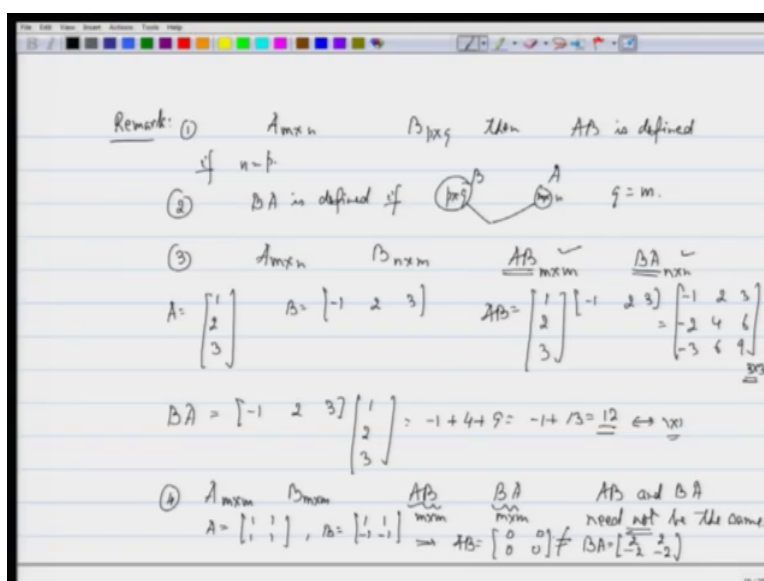 File Edit View Insert Actions Tools Help
Remark: ① A m×n B p×q then AB is defined
if n=p.
② BA is defined if p×q B A n q=m.
③ A m×n B n×m AB ✓ m×m BA ✓ n×n
A = [1 2 3] B = [-1 2 3] AB = [1 2 3] [-1 2 3] = [-1 2 3 -2 4 6 -3 6 9] 3×3
BA = [-1 2 3] [1 2 3] = -1+4+9 = -1+13 = 12 ↔ 1×1
④ A m×m B m×m AB m×m BA m×m AB and BA
need not be the same
A = [1 1 1 1], B = [1 1 -1 -1] → AB = [0 0 0 0] ≠ BA = [2 2 -2 -2]